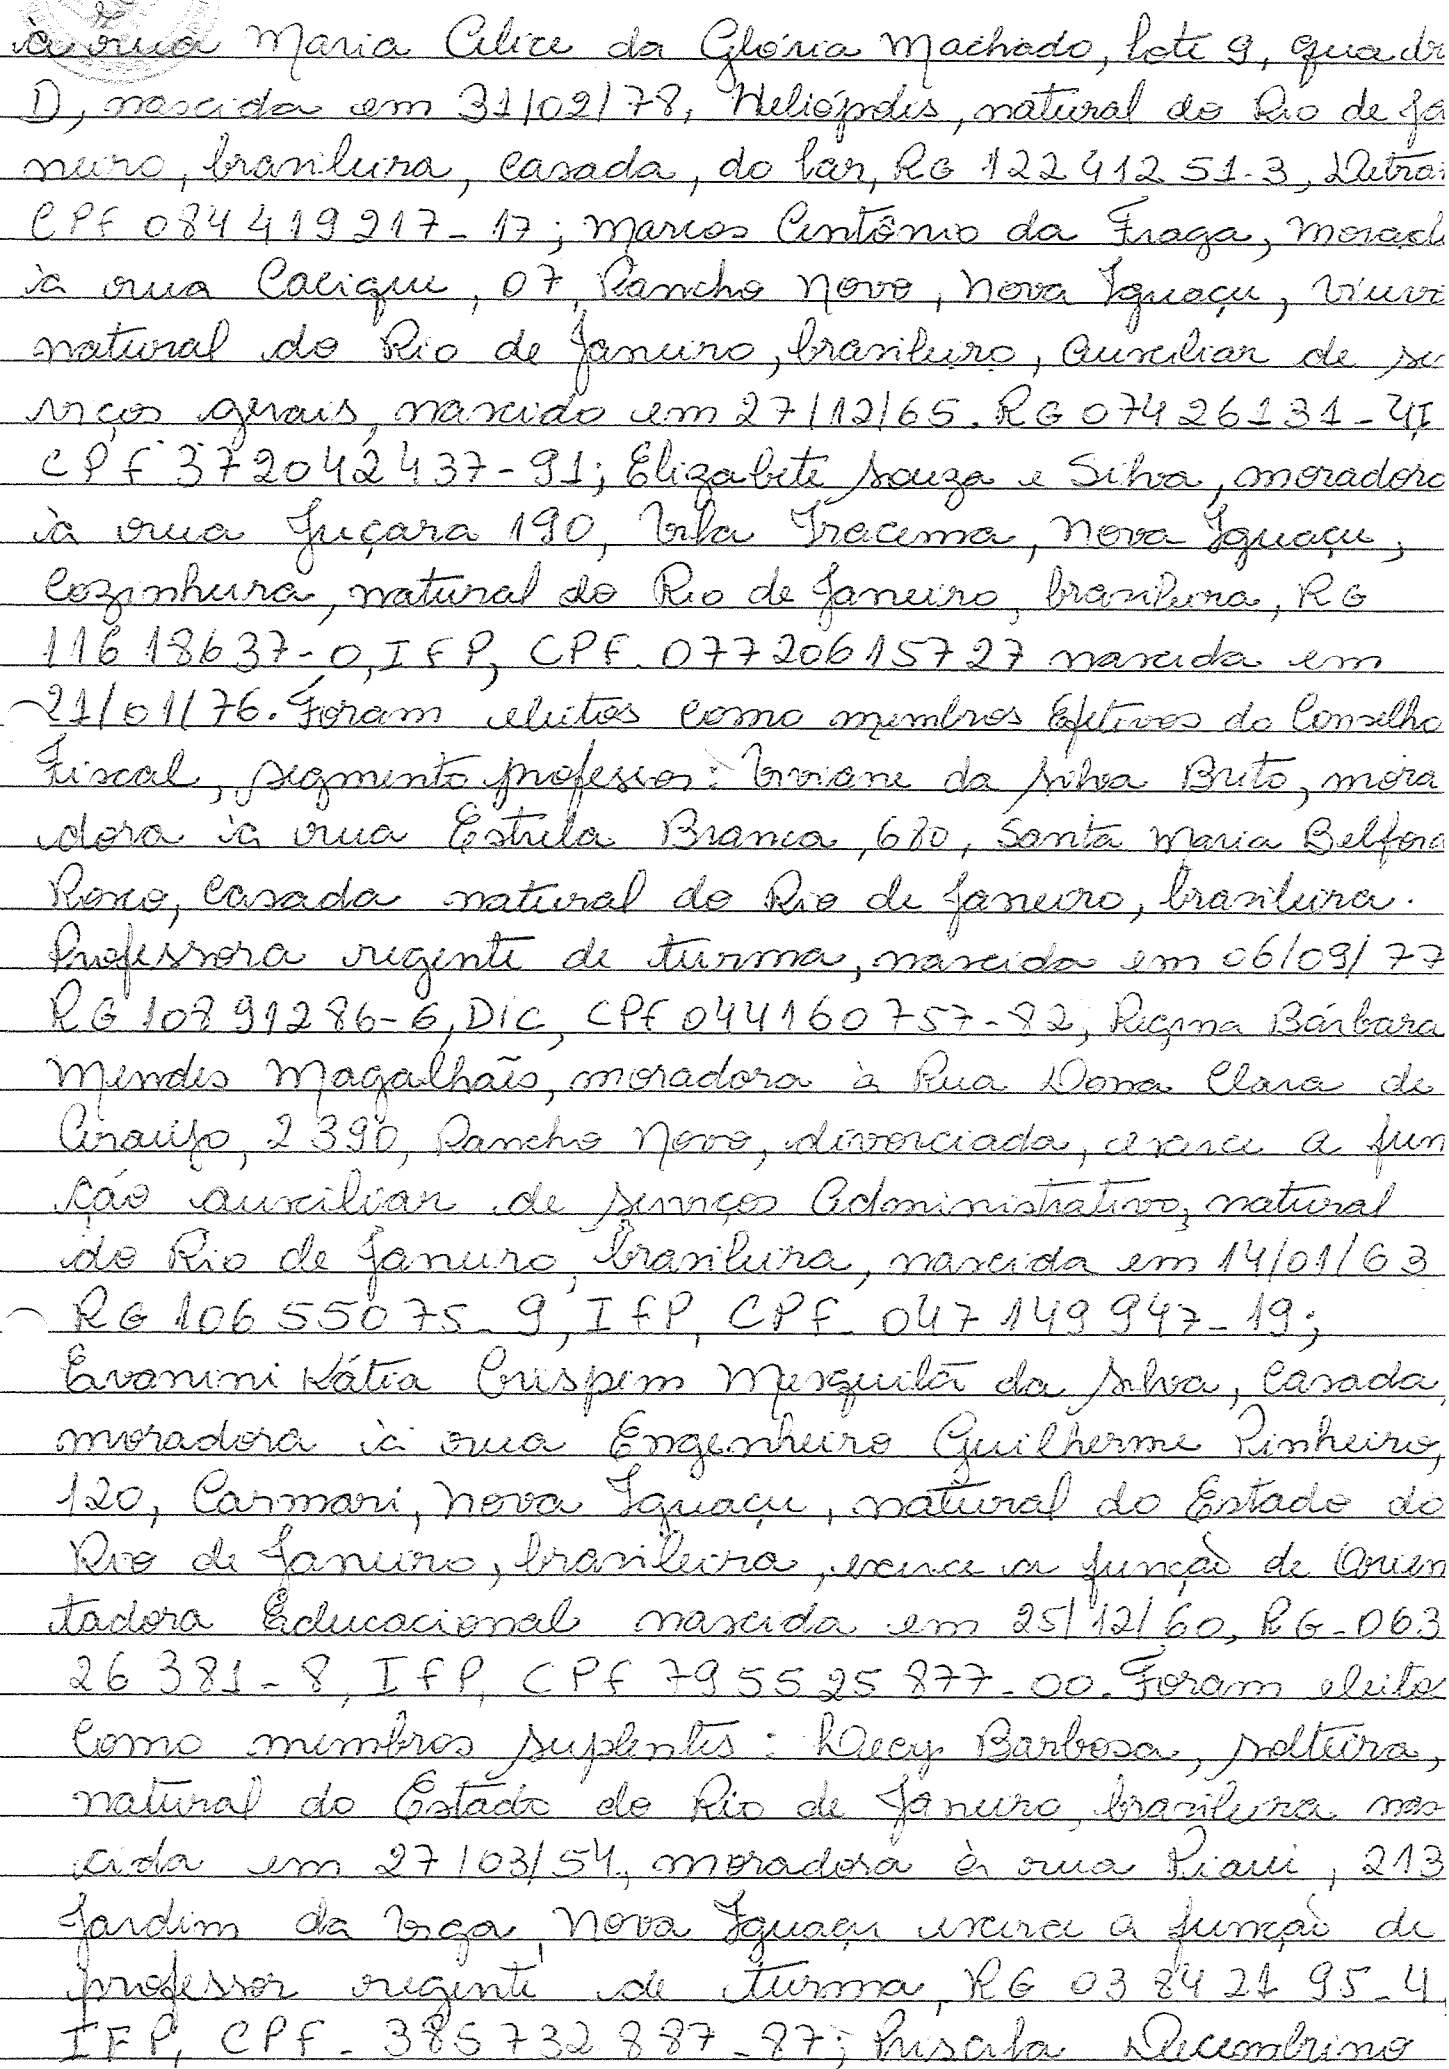 à rua Maria Alice da Glória Machado, lote 9, quadr
D, nascida em 31/02/78, Heliópolis, natural do Rio de Ja
neiro, brasileira, casada, do lar, RG 122412 51-3, Detran
CPF 084419217-17; Marcos Antônio da Fraga, morad
à rua Cacique, 07, Rancho Novo, Nova Iguaçu, viúv
natural do Rio de Janeiro, brasileiro, auxiliar de ser
viços gerais, nascido em 27/12/65. RG 07426131-4,I
CPF 372042437-91; Elizabete Souza e Silva, moradora
à rua Juçara 190, Vila Iracema, Nova Iguaçu,
Cozinheira, natural do Rio de Janeiro, brasileira, RG
11618637-0, IFP, CPF. 07720615727 nascida em
21/01/76. Foram eleitos como membros Efetivos do Conselho
Fiscal, segmento professor: Viviane da Silva Brito, mora
dora à rua Estrela Branca, 680, Santa Maria Belford
Roxo, casada natural do Rio de Janeiro, brasileira.
Professora regente de turma, nascida em 06/09/77
RG 10891286-6, DIC, CPF 044160757-82; Regina Bárbara
Mendes Magalhães, moradora à Rua Dona Clara de
Araújo, 2390, Rancho Novo, divorciada, exerce a fun
ção auxiliar de serviços Administrativo, natural
do Rio de Janeiro, brasileira, nascida em 14/01/63
RG 10655075-9, IFP, CPF. 047149947-19;
Evanini Kátia Crispim Mesquita da Silva, casada,
moradora à rua Engenheiro Guilherme Pinheiro,
120, Carmari, Nova Iguaçu, natural do Estado do
Rio de Janeiro, brasileira, exerce a função de Orien
tadora Educacional nascida em 25/12/60, RG-063
26381-8, IFP, CPF 795525877-00. Foram eleitos
como membros suplentes: Decy Barbosa, solteira,
natural do Estado do Rio de Janeiro, brasileira nas
cida em 27/03/54, moradora à rua Piaui, 213
Jardim da Viga, Nova Iguaçu exerce a função de
professor regente de turma, RG 03842195-4,
IFP, CPF- 385732887-87; Priscila Decembrino